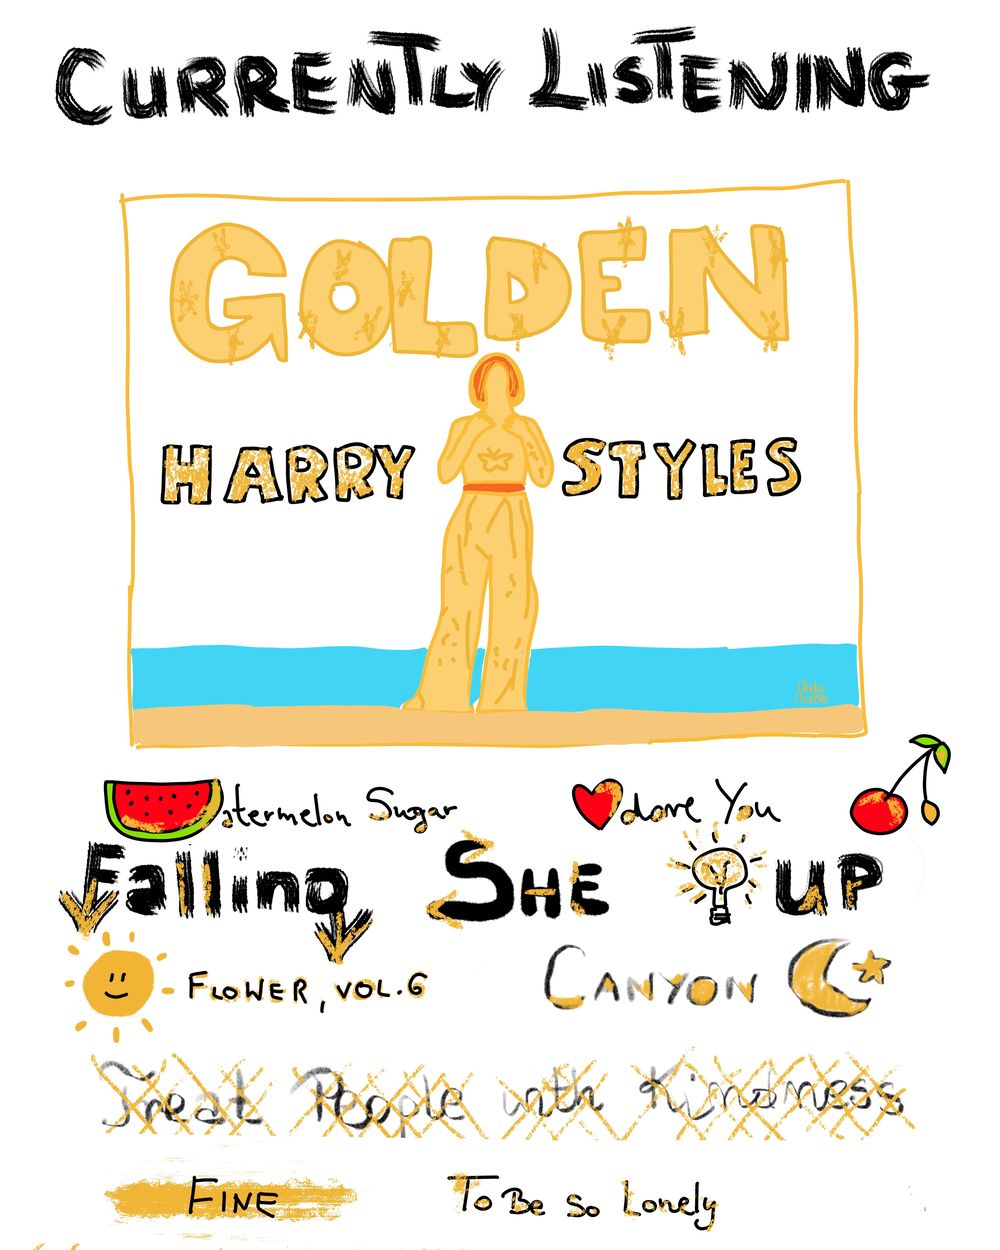 CURRENTLY LISTENING
GOLDEN
HARRY STYLES
atermelon Sugar
dore You
Falling SHE UP
FLOWER, VOL.6 CANYON
Treat People with Kindness
FINE To Be So Lonely